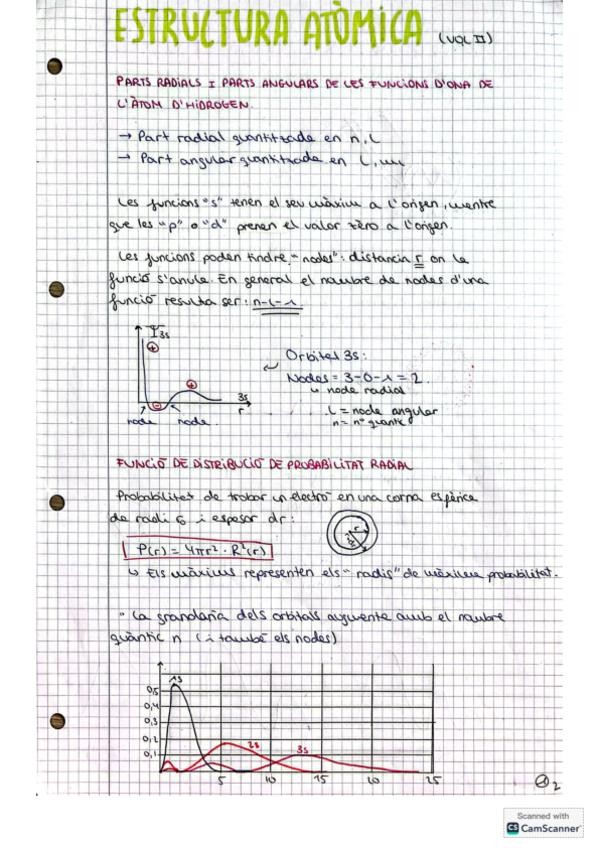 ESTRUCTURA ATÒMICA (UQI II)
PARTS RADIALS I PARTS ANGULARS DE LES FUNCIONS D'ONA DE
L'ÀTOM D'HIDROGEN.
→ Part radial quantitzada en n, l
→ Part angular quantitzada en l, m
Les funcions "s" tenen el seu màxim a l'origen, mentre
que les "p" o "d" prenen el valor zèro a l'origen.
Les funcions poden tindre "nodes": distància r on la
funció s'anule. En general el nombre de nodes d'una
funció resulta ser: n-l-1
Ψ3s
+
+
-
3s
r
node node
Orbital 3s:
Nodes = 3-0-1 = 2.
↳ node radial
l = node angular
n = nº quàntic
FUNCIÓ DE DISTRIBUCIÓ DE PROBABILITAT RADIAL
Probabilitat de trobar un electró en una corna esfèrica
de radi r i espesor dr:
r
P(r) = 4πr² · R²(r)
↳ Els màxims representen els "radis" de màxima probabilitat.
· La grandària dels orbitals augmente amb el nombre
quàntic n (i també els nodes)
1s
0,5
0,4
0,3
0,2
0,1
2s
3s
5 10 15 20 25
2
Scanned with
CS CamScanner